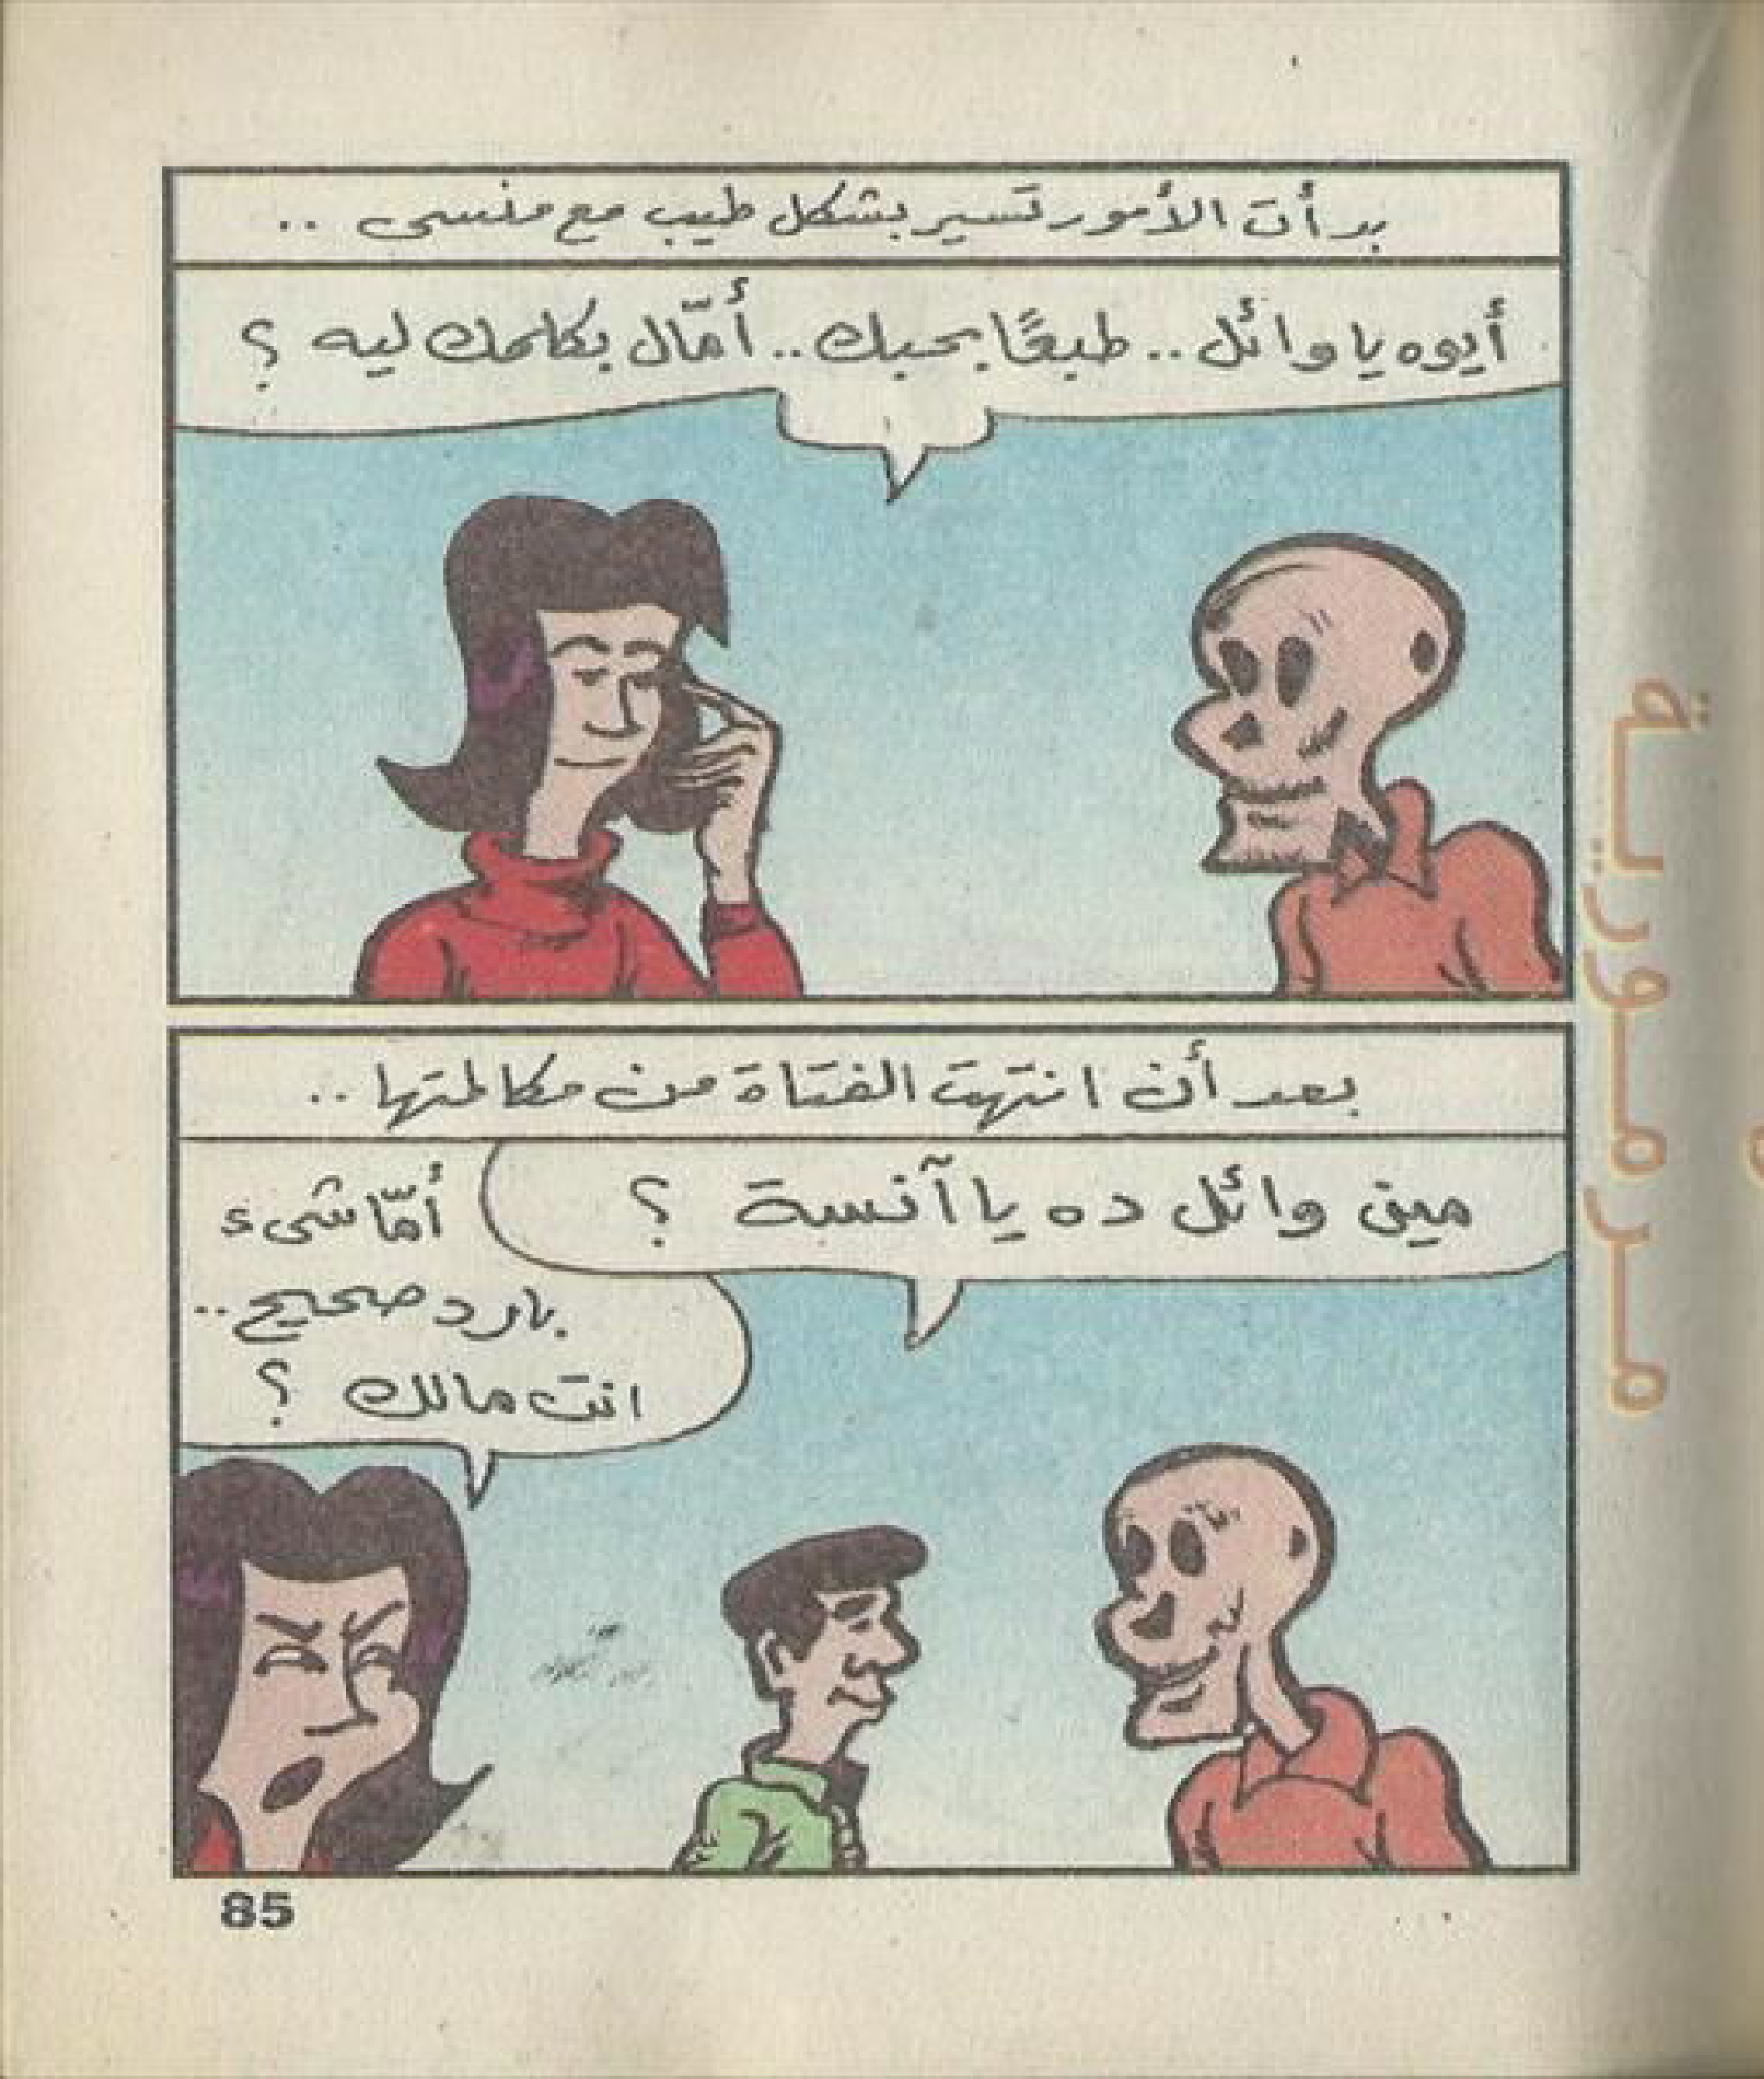 بدأت الأمور تسير بشكل طيب مع منسى ..
أيوه يا وائل .. طبعًا بحبك .. أمّال بكلمك ليه ؟
بعد أن انتهت الفتاة من مكالمتها ..
مين وائل ده يا آنسة ؟
أمّا شىء
بارد صحيح ..
انت مالك ؟
85
مرمورية